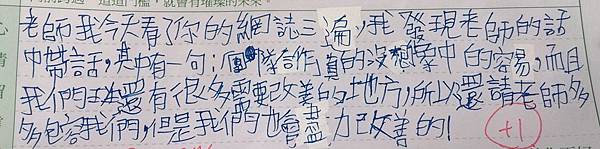 老師我今天看了你的網誌三遍,我發現老師的話
中帶話,其中有一句:團隊合作真的沒想像中的容易,而且
我們班還有很多需要改善的地方,所以還請老師多
多包容我們,但是我們也會盡力改善的!
+1